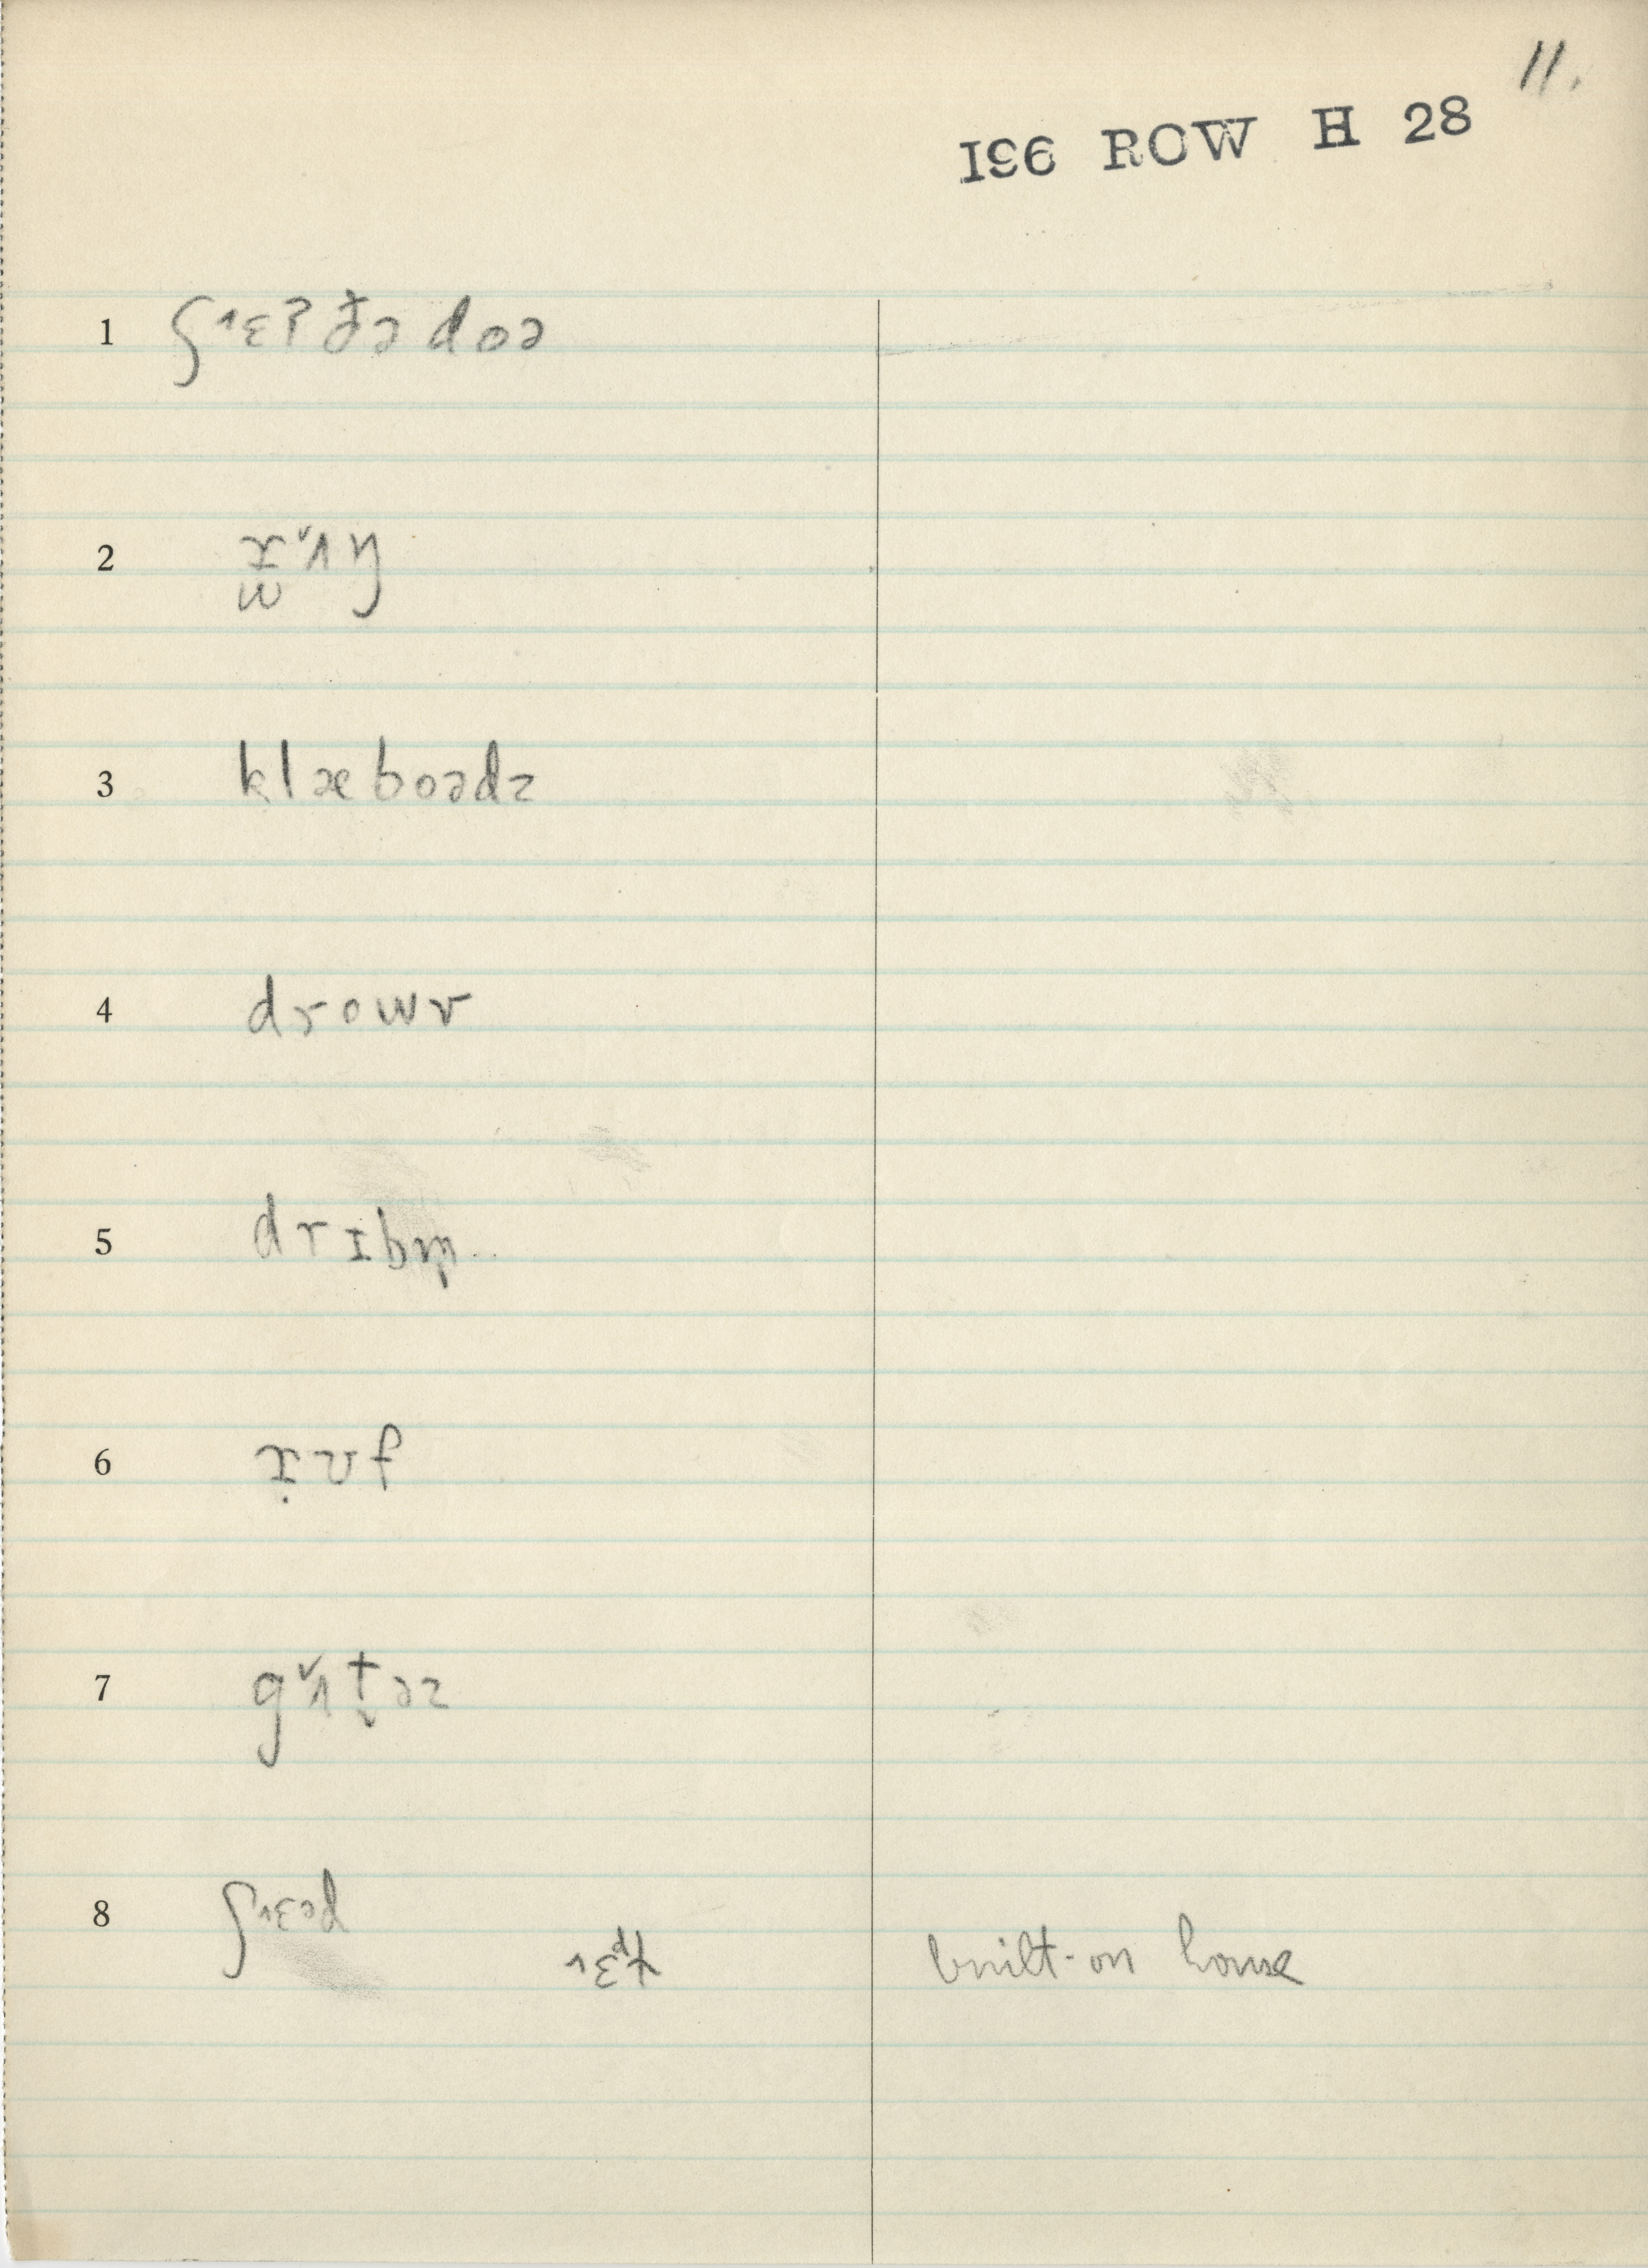 11.
196 ROW H 28
1 ʃ˄ɛʔt̬ə doə
2 ɹ̯ʌ̌ŋ
w
3 klæboədz
4 drowr
5 drɪbm
6 ɹ̣ʊf
7 gʌ̌t̬əz
8 ʃ˄ɛəd
˄ɛdɫ built-on house